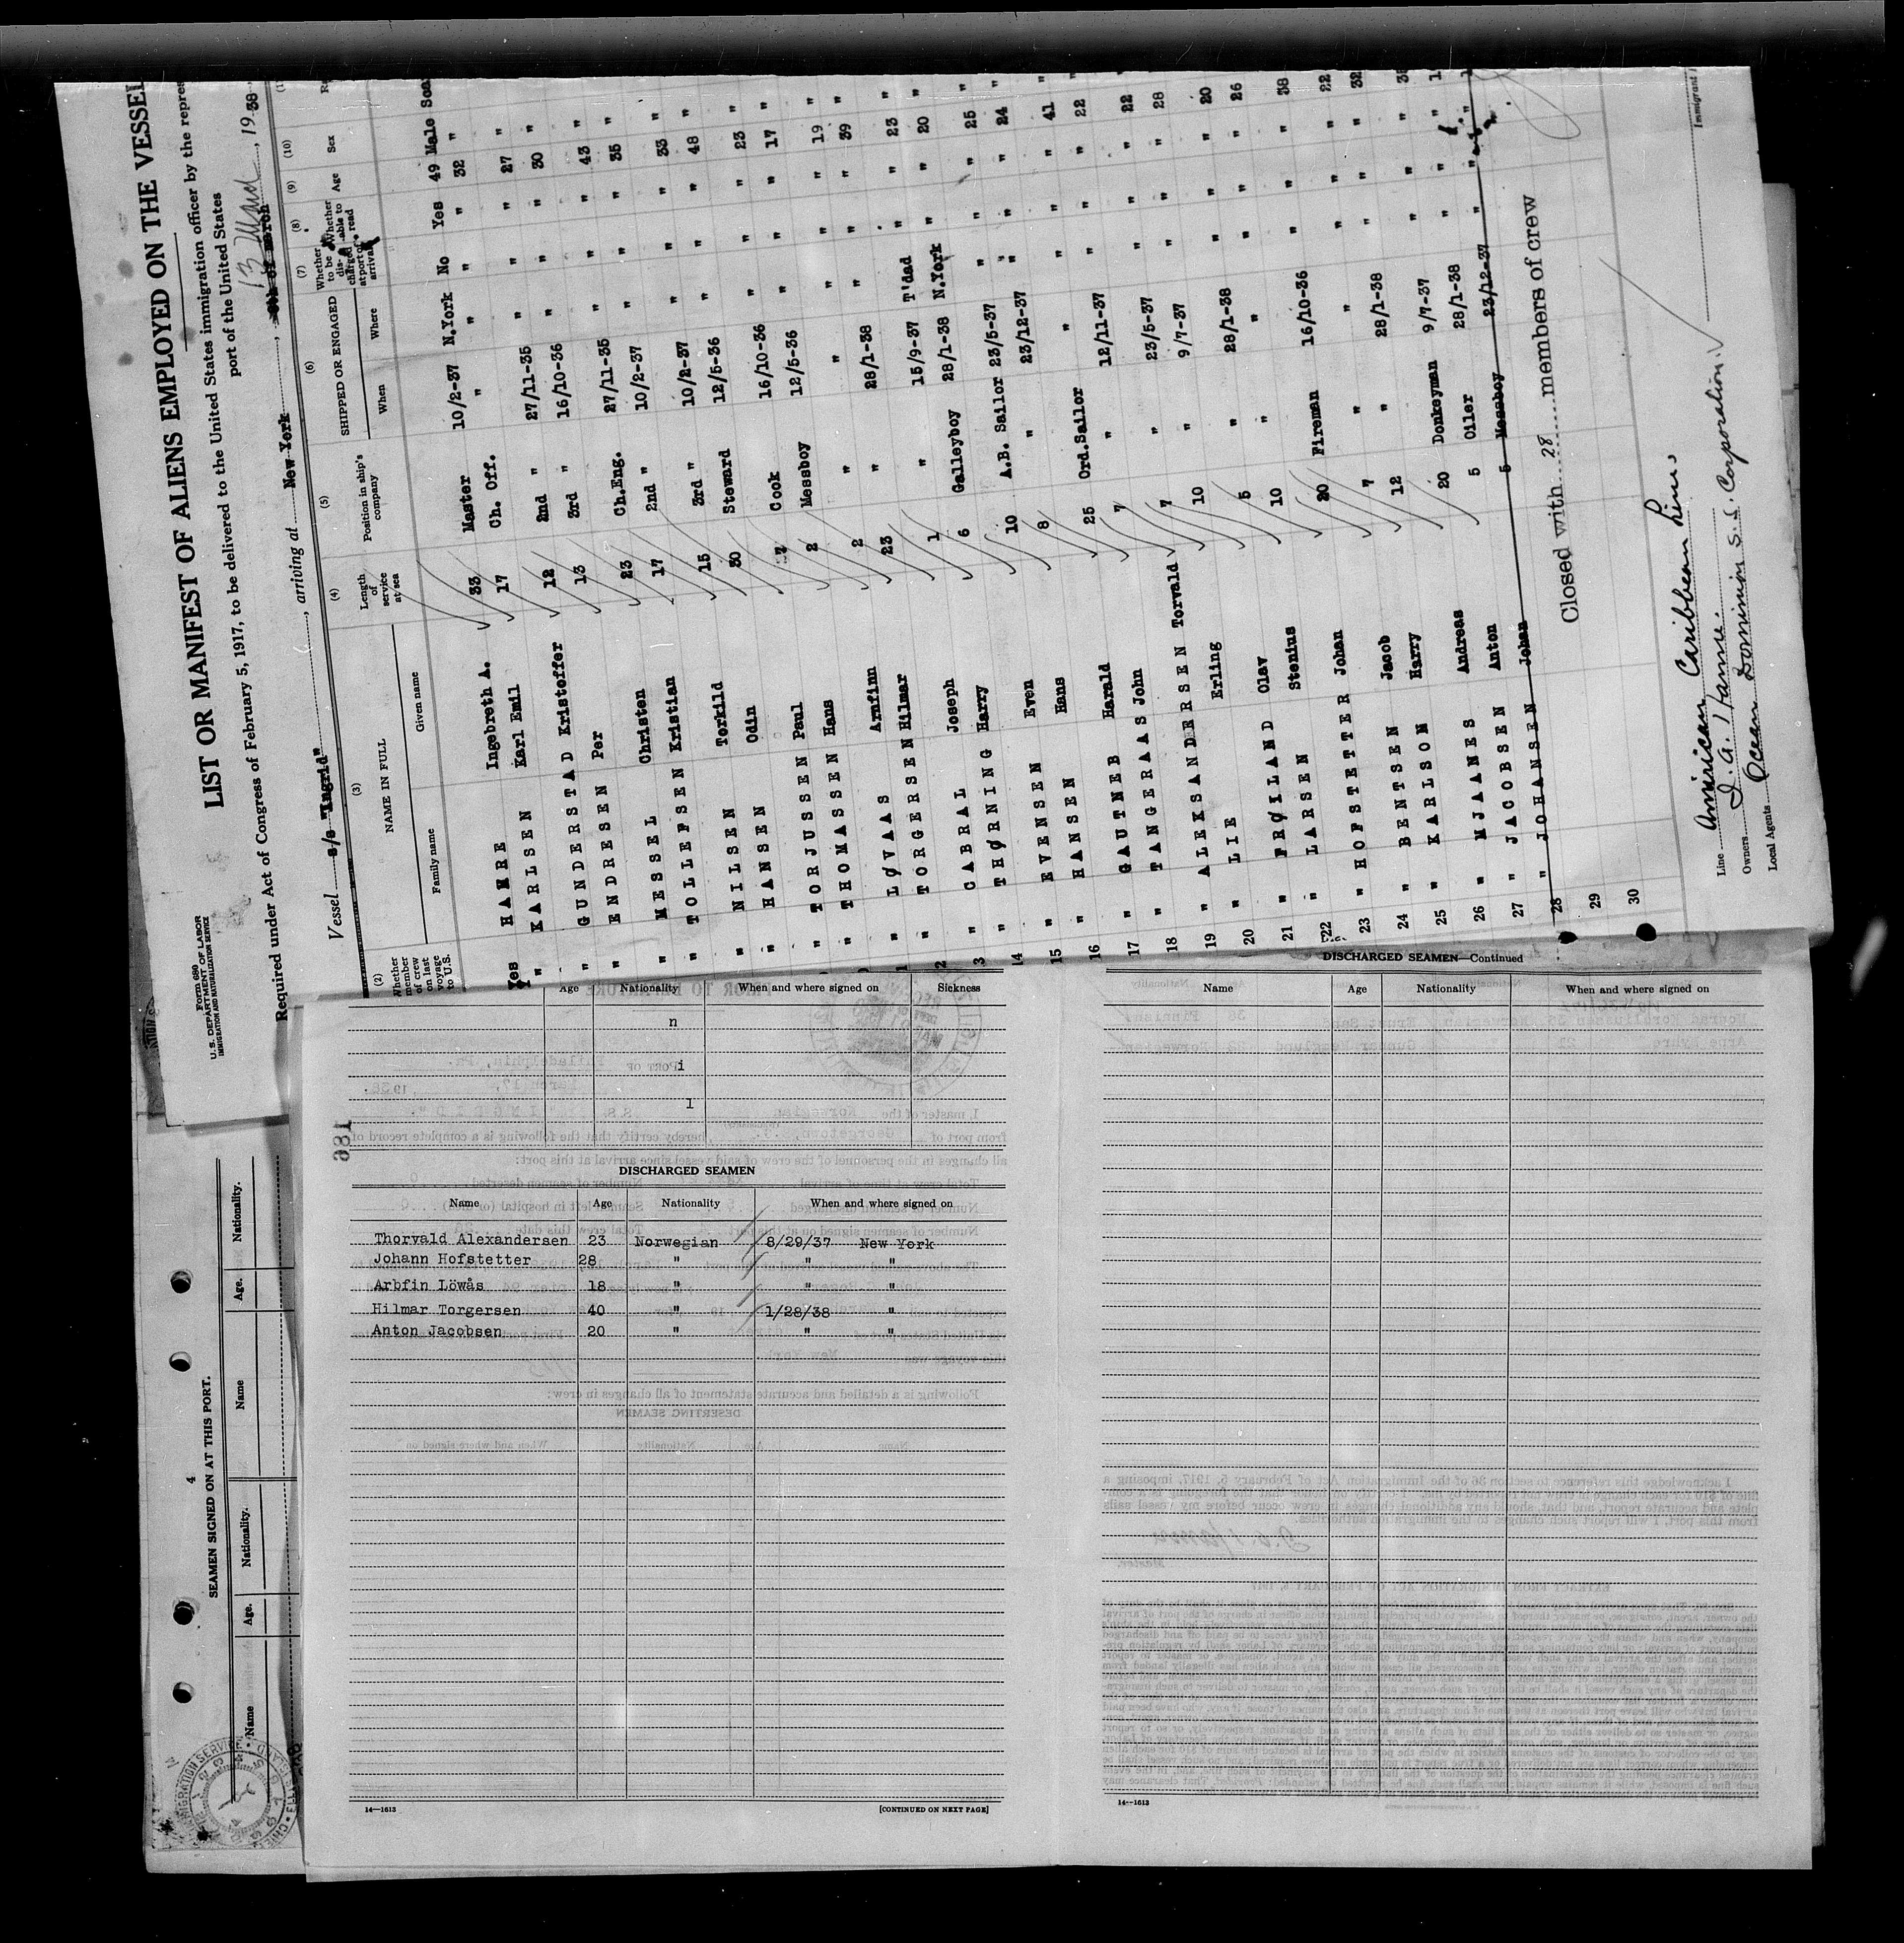 Form 680
U. S. DEPARTMENT OF LABOR
IMMIGRATION AND NATURALIZATION SERVICE
LIST OR MANIFEST OF ALIENS EMPLOYED ON THE VESSEL
Required under Act of Congress of February 5, 1917, to be delivered to the United States immigration officer by the repre
port of the United States
Vessel s/s "Ingrid", arriving at New York, 13 March, 1938,
(2) (3) (4) (5) (6) (7) (8) (9) (10)
Whether member of crew on last voyage to U.S. NAME IN FULL Family name Given name Length of service at sea Position in ship's company SHIPPED OR ENGAGED When Where Whether to be discharged at port of arrival Whether able to read Age Sex
Yes HAMRE Ingebreth A. 33 Master 10/2-37 N.York No Yes 49 Male
" KARLSEN Karl Emil 17 Ch. Off. " " " " 32 "
" GUNDERSTAD Kristoffer 12 2nd " 27/11-35 " " " 27 "
" ENDRESEN Per 13 3rd " 16/10-36 " " " 30 "
" MESSEL Christen 23 Ch.Eng. 27/11-35 " " " 43 "
" TOLLEFSEN Kristian 17 2nd " 10/2-37 " " " 35 "
" NILSEN Torkild 15 3rd " 10/2-37 " " " 33 "
" HANSEN Odin 30 Steward 12/5-36 " " " 48 "
" TORJUSSEN Paul Cook 16/10-36 " " " 23 "
" THOMASSEN Hans 2 Messboy 12/5-36 " " " 17 "
" LØVAAS Arnfinn 2 " " " " " 19 "
" TORGERSEN Hilmar 23 " 28/1-38 " " " 39 "
" CABRAL Joseph 1 " 15/9-37 T'dad " " 23 "
" THØRNING Harry 6 Galleyboy 28/1-38 N.York " " 20 "
" EVENSEN Even 10 A.B. Sailor 23/5-37 " " " 25 "
" HANSEN Hans 8 " 23/12-37 " " " 24 "
" GAUTNEB Harald 25 " " " " 41 "
" TANGERAAS John 7 Ord.Sailor 12/11-37 " " " 22 "
" ALEKSANDERSEN Torvald 7 " 23/5-37 " " " 22 "
" LIE Erling 10 " 9/7-37 " " " 28 "
" FRØILAND Olav 5 " 28/1-38 " " " 20
" LARSEN Stenius 10 " " " " " 26
" HOFSTETTER Johan 20 Fireman 16/10-36 " " " 38
" BENTSEN Jacob 7 " " " " " 22
" KARLSON Harry 12 " 28/1-38 " " " 32
" MJAANES Andreas 20 Donkeyman 9/7-37 " " "
" JACOBSEN Anton 5 Oiler 28/1-38 " " "
" JOHANSEN Johan 5 Messboy 23/12-37 " "
14
15
16
17
18
19
20
21
22
23
24
25
26
27
28
29
30
Closed with 28 members of crew
Line American Caribbean Line
Owners
Local Agents Ocean Dominion S.S. Corporation
Immigrant
Age Nationality When and where signed on Sickness
n
i
l
186
DISCHARGED SEAMEN
Name Age Nationality When and where signed on
Thorvald Alexandersen 23 Norwegian 8/29/37 New York
Johann Hofstetter 28 " " "
Arbfin Löwås 18 " " "
Hilmar Torgersen 40 " 1/28/38 "
Anton Jacobsen 20 " " "
14—1613
[CONTINUED ON NEXT PAGE]
DISCHARGED SEAMEN—Continued
Name Age Nationality When and where signed on
14—1613
4
SEAMEN SIGNED ON AT THIS PORT.
Name Age. Nationality. Name Age. Nationality.